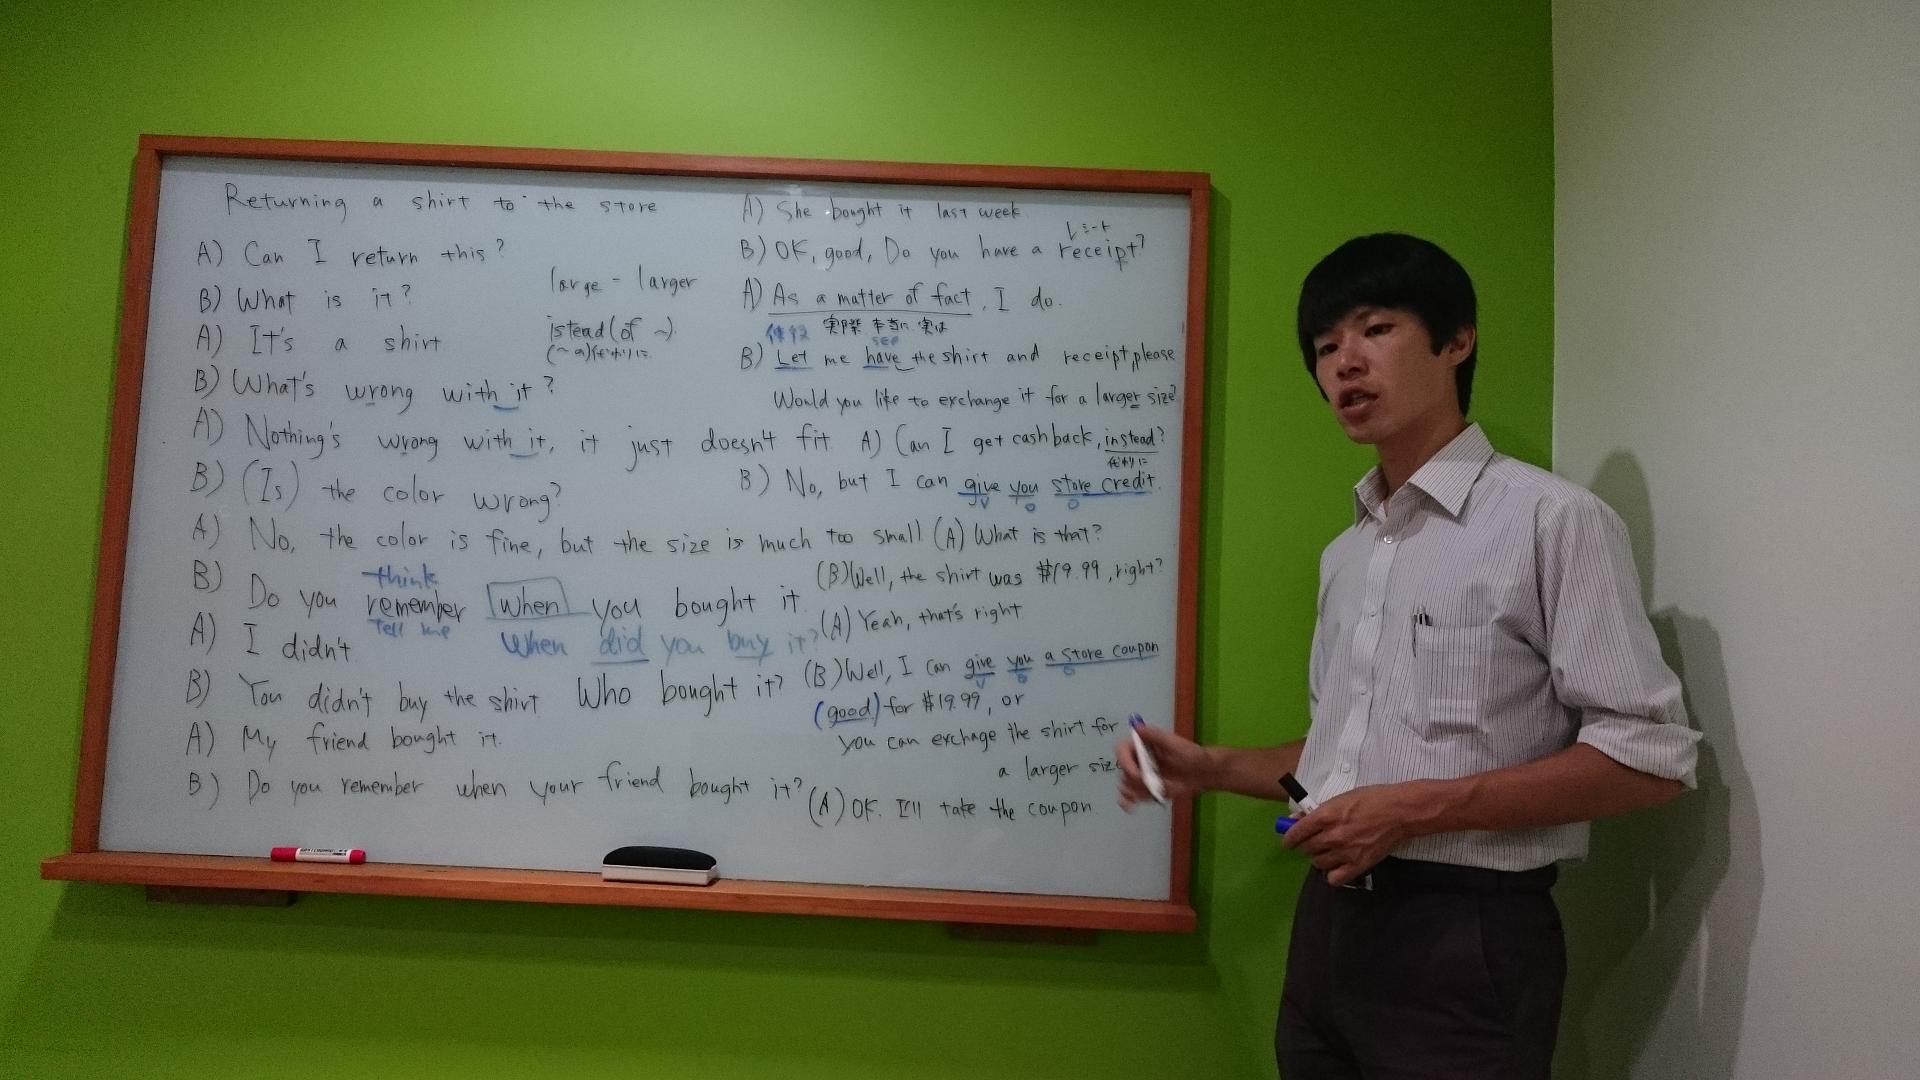 Returning a shirt to the store
A) Can I return this?
B) What is it?
A) It's a shirt
B) What's wrong with it?
A) Nothing's wrong with it, it just doesn't fit
B) (Is) the color wrong?
A) No, the color is fine, but the size is much too small
think
B) Do you remember when you bought it
Tell me
When did you buy it?
A) I didn't
B) You didn't buy the shirt Who bought it?
A) My friend bought it.
B) Do you remember when your friend bought it?
large - larger
istead (of ~)
(~の)代わりに
A) She bought it last week
レシート
B) OK, good, Do you have a receipt?
A) As a matter of fact, I do.
実際 本当に 実は
see
B) Let me have the shirt and receipt, please
Would you like to exchange it for a larger size?
A) Can I get cash back, instead?
代わりに
B) No, but I can give you store credit.
V O O
(A) What is that?
(B) Well, the shirt was $19.99, right?
(A) Yeah, that's right
(B) Well, I can give you a store coupon
V O O
(good) for $19.99, or
you can exchage the shirt for
a larger size
(A) OK. I'll take the coupon.